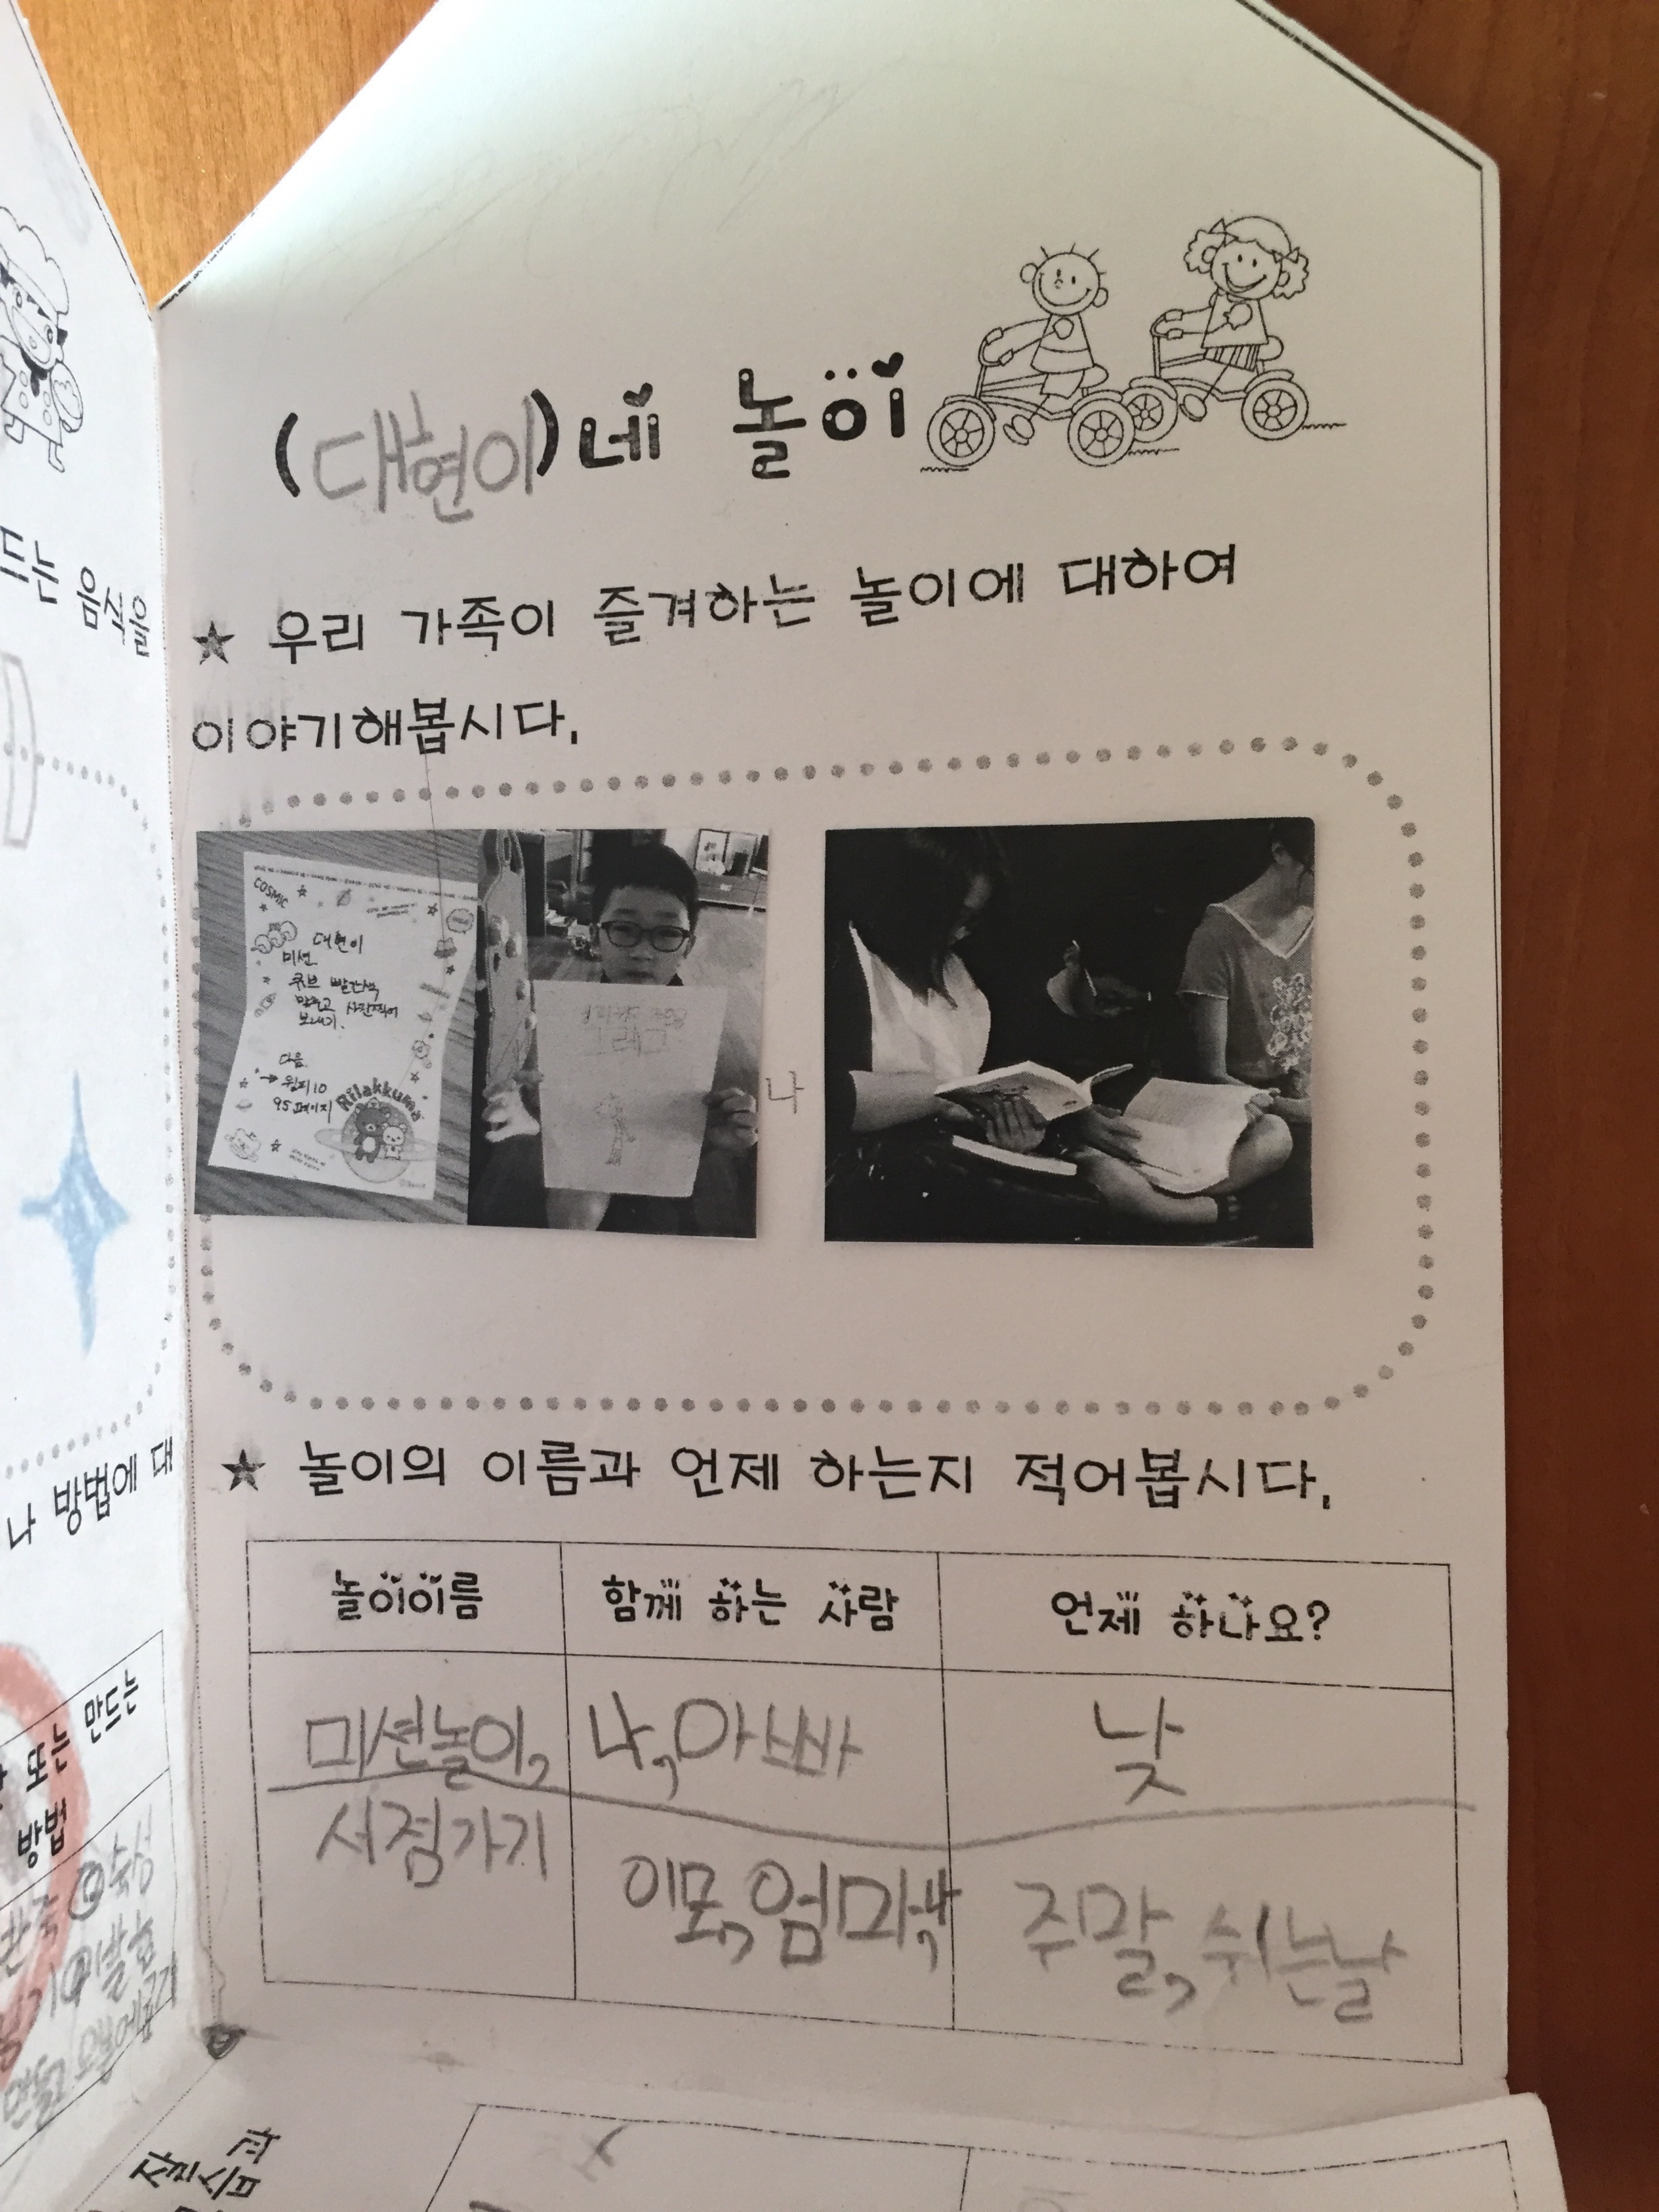 (대현이)네 놀이
★ 우리 가족이 즐겨하는 놀이에 대하여
이야기해봅시다.
COSMIC
대현이
미션
큐브 빨간색
맞추고 사진찍어
보내기.
다음
→ 윔피10
95페이지
Rilakkuma
나
★ 놀이의 이름과 언제 하는지 적어봅시다.
놀이이름 함께 하는 사람 언제 하나요?
미션놀이, 나,아빠 낮
서점가기 이모,엄마,나 주말,쉬는날
나 방법에 대
또는 만드는
방법